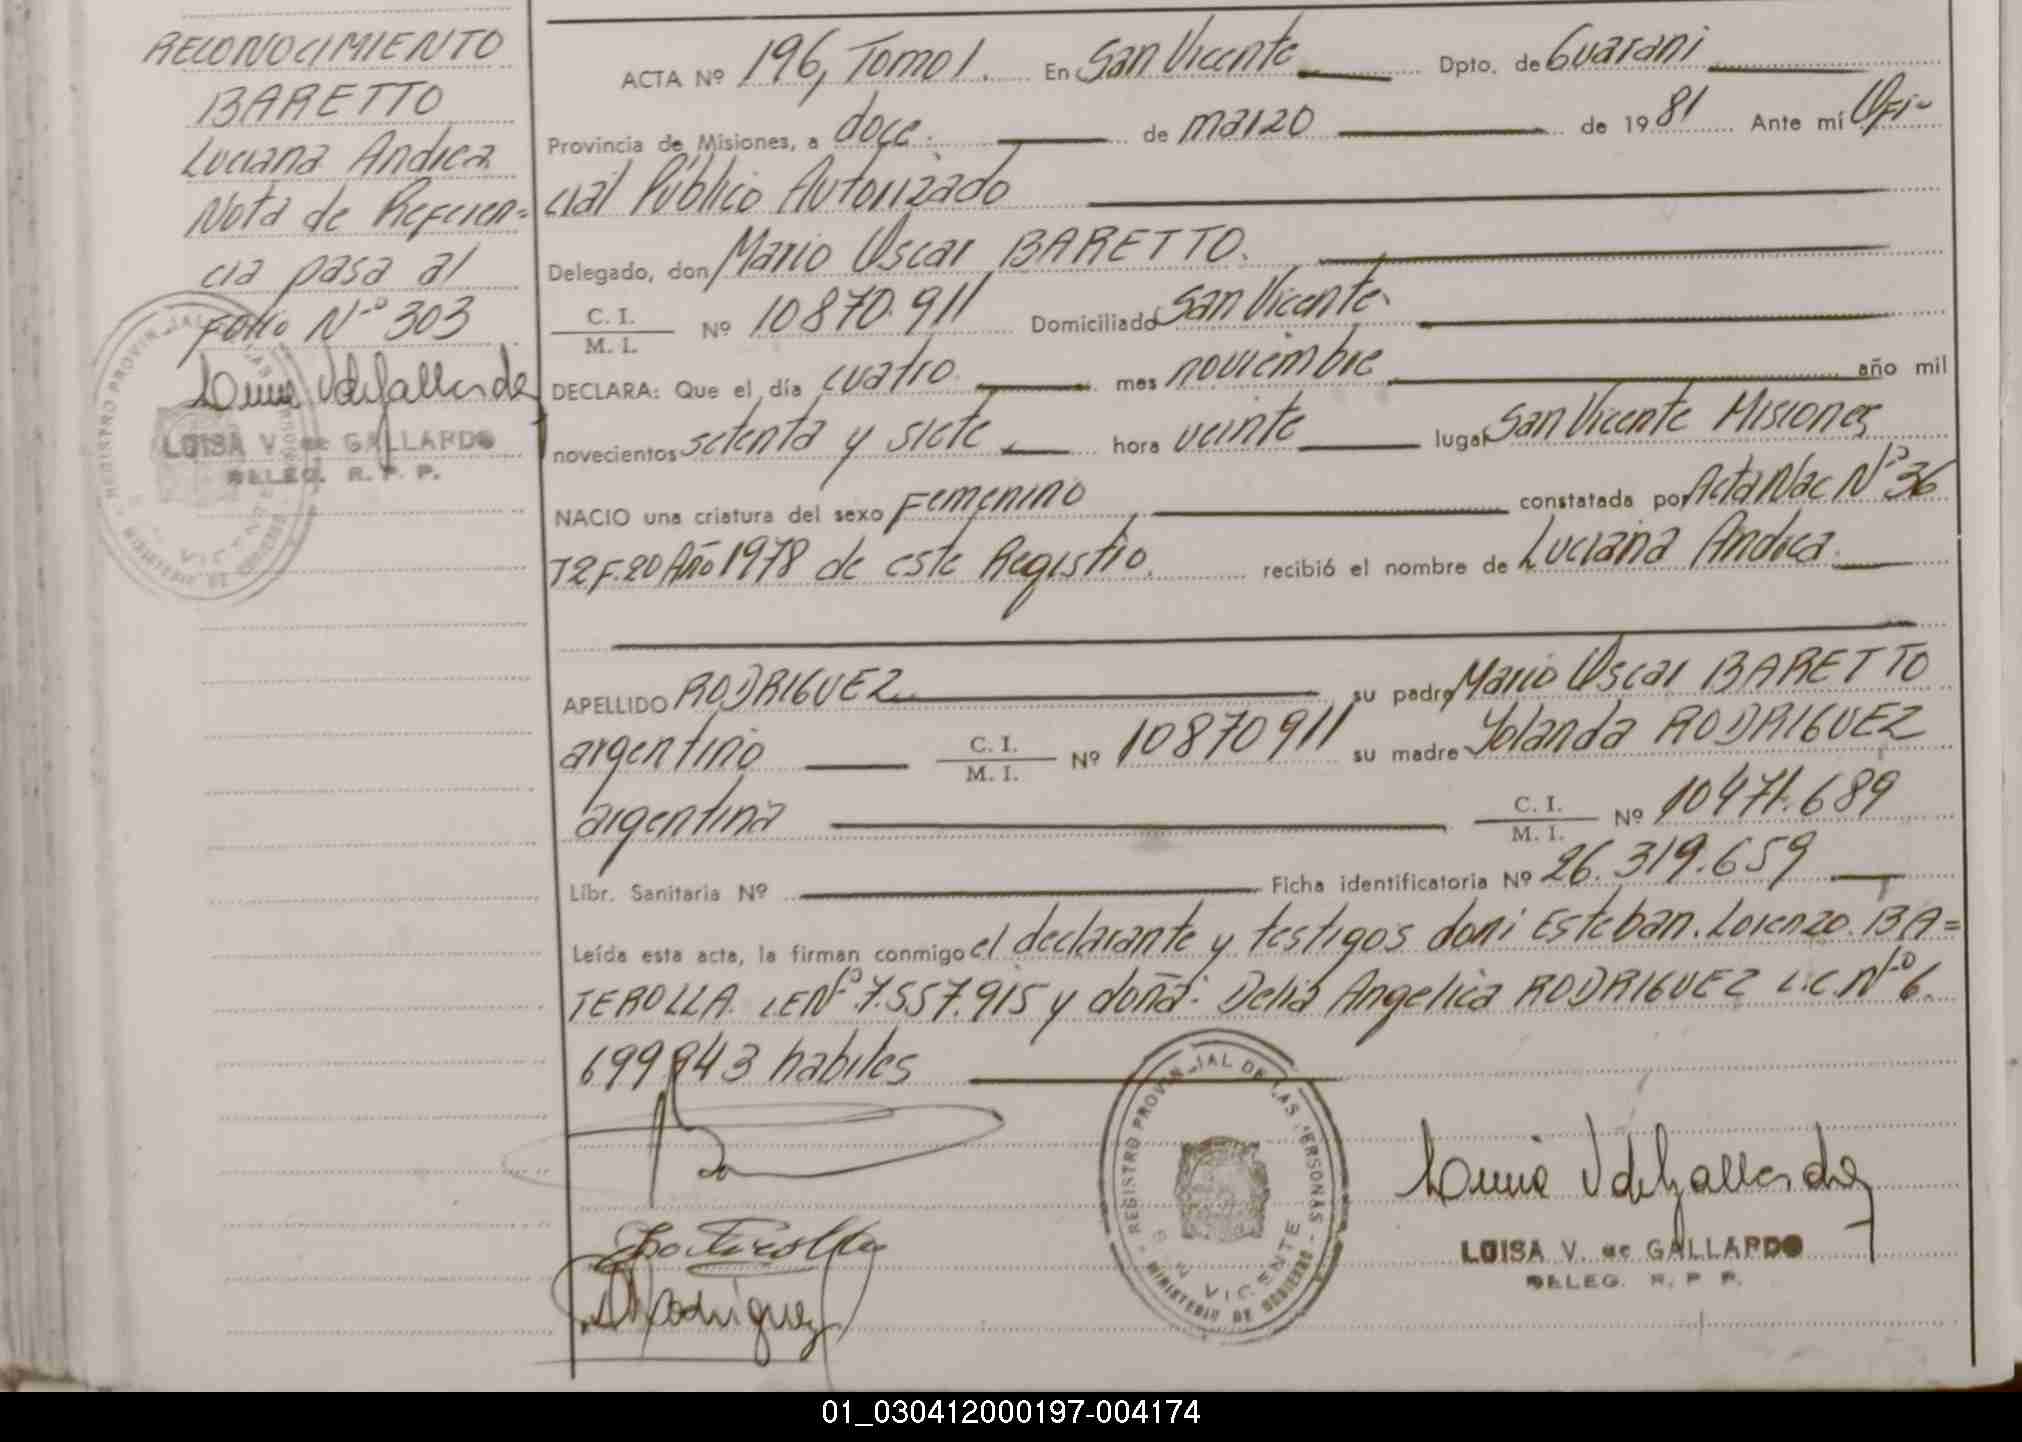 RECONOCIMIENTO
BARETTO
Luciana Andrea
Nota de Referen=
cia pasa al
Folio Nº 303
LUISA V. de GALLARDO
DELEG. R. P. P.
ACTA Nº 196, Tomo 1. En San Vicente Dpto. de Guarani
Provincia de Misiones, a doce. de marzo de 1981 Ante mí Ofi-
cial Público Autorizado
Delegado, don Mario Oscar BARETTO.
C. I. / M. I. Nº 10870.911 Domiciliado San Vicente
DECLARA: Que el día cuatro mes noviembre año mil
novecientos setenta y siete hora veinte lugar San Vicente Misiones
NACIO una criatura del sexo Femenino constatada por Acta Nac Nº 36
T2 F.20 Año 1978 de este Registro. recibió el nombre de Luciana Andrea
APELLIDO RODRIGUEZ su padre Mario Oscar BARETTO
argentino C. I. / M. I. Nº 10870911 su madre Yolanda RODRIGUEZ
argentina C. I. / M. I. Nº 10471.689
Libr. Sanitaria Nº Ficha identificatoria Nº 26.319.659
Leída esta acta, la firman conmigo el declarante y testigos don: Esteban. Lorenzo. BA=
TEROLLA. LE Nº 7.557.915 y doña: Delia Angelica RODRIGUEZ L.C. Nº 6.
699.943 habiles
REGISTRO PROVINCIAL DE LAS PERSONAS
SAN VICENTE
MINISTERIO DE GOBIERNO
LUISA V. de GALLARDO
DELEG. R. P. P.
Rodriguez
01_030412000197-004174